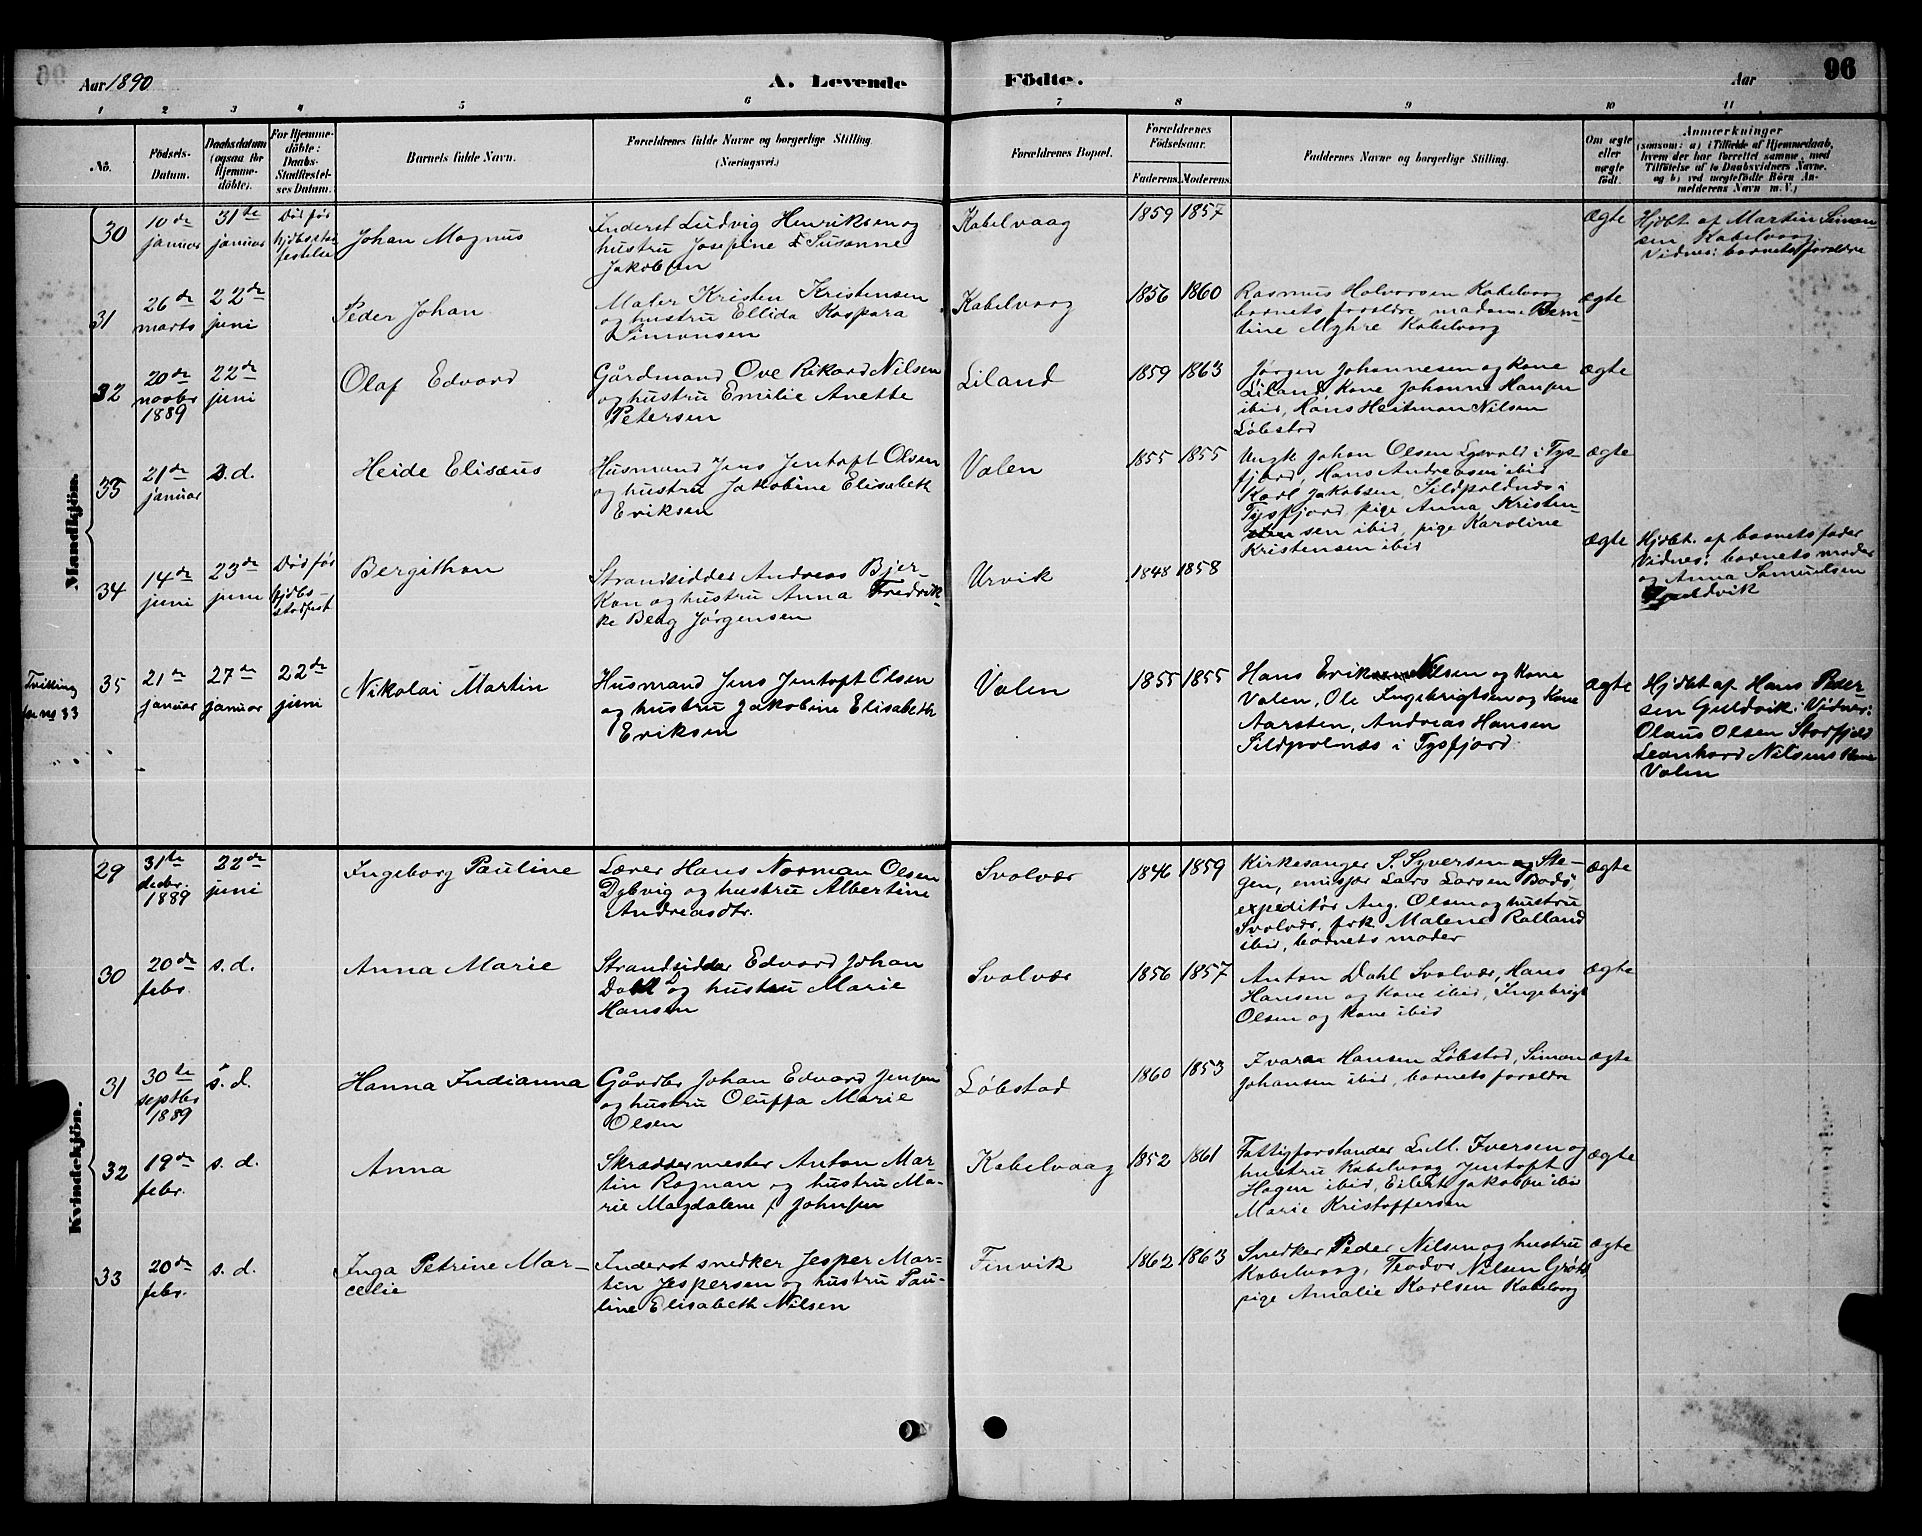 Aar 1890 A. Levende Födte. Aar 96
1 2 3 4 5 6 7 8 9 10 11
No. Födsels-Datum. Daabsdatum (ogsaa for Hjemmedöbte). For Hjemmedöbte: Daabs-Stadfæstelses Datum. Barnets fulde Navn. Forældrenes fulde Navne og borgerlige Stilling (Næringsvei.) Forældrenes Bopæl. Forældrenes Födselsaar. Faderens. Moderens. Faddernes Navne og borgerlige Stilling. Om ægte eller uægte födt. Anmærkninger
(saasom: a) i Tilfælde af Hjemmedaab,
hvem der har forrettet samme, med
Tilföielse af to Daabsvidners Navne.
og b) ved uægtefödte Börn Anmelderens Navn m. V.)
Mandkjön.
30 10de januar 31te januar Död før hjdbs stadfestelse Johan Magnus
Inderst Ludvig Henriksen og
hustru Josefine Susanne
Jakobsen
Kabelvaag 1859 1857 ægte
Hjdbt. af Martin Simon-
sen Kabelvaag
Vidnes: barnets forældre
31 26de marts 22de juni Peder Johan
Maler Kristen Kristensen
og hustru Ellida Kaspara
Simonsen
Kabelvaag 1856 1860
Rasmus Halvorsen Kabelvaag
barnets forældre, madame Bern-
tine Myhre Kabelvaag
ægte
32 20de novbr 1889 22de juni Olaf Edvard
Gårdmand Ove Rikard Nilsen
og hustru Emilie Anette
Petersen
Liland 1859 1863
Jørgen Johannesen og kone
Liland, kone Johanna Hansen
ibid, Hans Heitman Nilsen
Løbstad
ægte
33 21de januar s. d. Heide Elisæus
Husmand Jens Jentoft Olsen
og hustru Jakobine Elisabeth
Eriksen
Valen 1855 1855
Ungk Johan Olsen Lysvold i Tys-
fjord, Hans Andreasen ibid
Karl Jakobsen, Sildpoldnæs i
Tysfjord, pige Anna Kristen-
sen ibid, pige Karoline
Kristensen ibid
ægte
34 14de juni 23de juni Död før hjdbs-stadfest Bergithon
Strandsidder Andreas Bjer-
kan og hustru Anna Fredrik-
ke Berg Jørgensen
Urvik 1848 1858 ægte
Hjdbt. af barnets fader
Vidnes: barnets moder
og Anna Samuelsen
Guldvik
Tvilling
no 33
35 21de januar 27de januar 22de juni Nikolai Martin
Husmand Jens Jentoft Olsen
og hustru Jakobine Elisabeth
Eriksen
Valen 1855 1855
Hans Nilsen og kone
Valen, Ole Ingebrigtsen og kone
Aarsten, Andreas Hansen
Sildpolnæs i Tysfjord
ægte
Hjdbt af Hans Peder-
sen Guldvik. Vidner:
Olaus Olsen Storfjeld
Leonhard Nilsens kone
Valen
Kvindekjön.
29 31te decbr. 1889 22de juni Ingeborg Pauline
Lærer Hans Norman Olsen
Dybvig og hustru Albertine
Andreasdtr.
Svolvær 1846 1859
Kirkesanger S. Syversen Ste-
gen, emisjær Lars Larsen Bodö,
expeditør Aug. Olsen og hustru
Svolvær, frk Malena Rolland
ibid, barnets moder
ægte
30 20de febr. s. d. Anna Marie
Strandsidder Edvard Johan
Dahl og hustru Marie
Hansen
Svolvær 1856 1857
Anton Dahl Svolvær, Hans
Hansen og kone ibid, Ingebrigt
Olsen og kone ibid
ægte
31 30te septbr 1889 s. d. Hanna Indianna
Gårdbr Johan Edvard Jensen
og hustru Oluffa Marie
Olsen
Løbstad 1860 1853
Ivar Hansen Løbstad, Simon
Johansen ibid, barnets forældre
ægte
32 19de febr. s. d. Anna
Skræddermester Anton Mar-
tin Rognan og hustru Ma-
rie Magdalene Johnsen
Kabelvaag 1852 1861
Fattigforstander L. M. Iversen og
hustru Kabelvaag Jentoft
Hagen ibid, Eilert Jakobsen ibid
Marie Kristoffersen
ægte
33 20de febr. s. d. Inga Petrine Mar-
celie
Inderst snedker Jesper Mar-
tin Jespersen og hustru Pau-
line Elisabeth Nilsen
Finvik 1862 1863
Snedker Peder Nilsen og hustru
Kabelvaag, Teodor Nilsen
pige Amalie Karlsen Kabelvaag
ægte